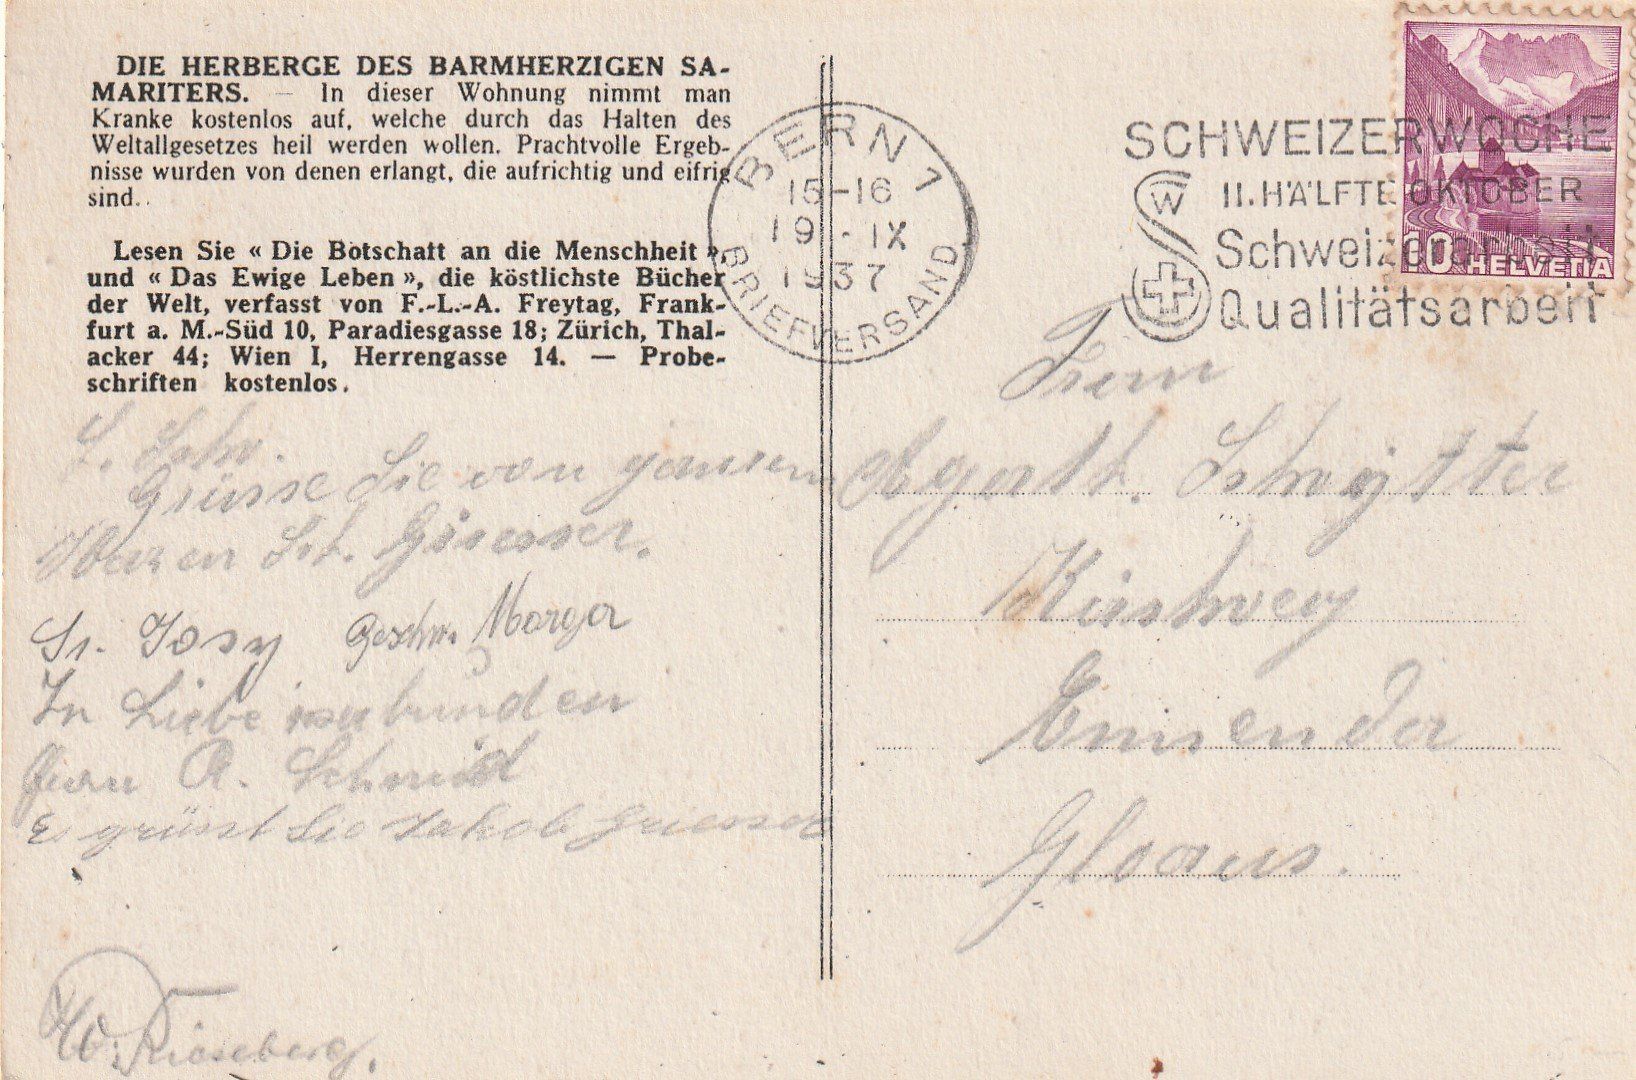 DIE HERBERGE DES BARMHERZIGEN SA-
MARITERS. — In dieser Wohnung nimmt man
Kranke kostenlos auf, welche durch das Halten des
Weltallgesetzes heil werden wollen. Prachtvolle Ergeb-
nisse wurden von denen erlangt, die aufrichtig und eifrig
sind..
Lesen Sie « Die Botschatt an die Menschheit »
und « Das Ewige Leben », die köstlichste Bücher
der Welt, verfasst von F.-L.-A. Freytag, Frank-
furt a. M.-Süd 10, Paradiesgasse 18; Zürich, Thal-
acker 44; Wien I, Herrengasse 14. — Probe-
schriften kostenlos.
L. Schw.
Grüsse Sie von ganzem
Herzen
Sr. Josy Geschw. Marga
In Liebe verbunden
A. Schmid
Es grüsst Sie Jakob
BERN 1
15-16
19.-IX
1937
BRIEFVERSAND
SCHWEIZERWOCHE
II. HÄLFTE OKTOBER
W
Schweizerarbeit
Qualitätsarbeit
10 HELVETIA
Agath.
Kirchweg
Ennenda
Glarus.